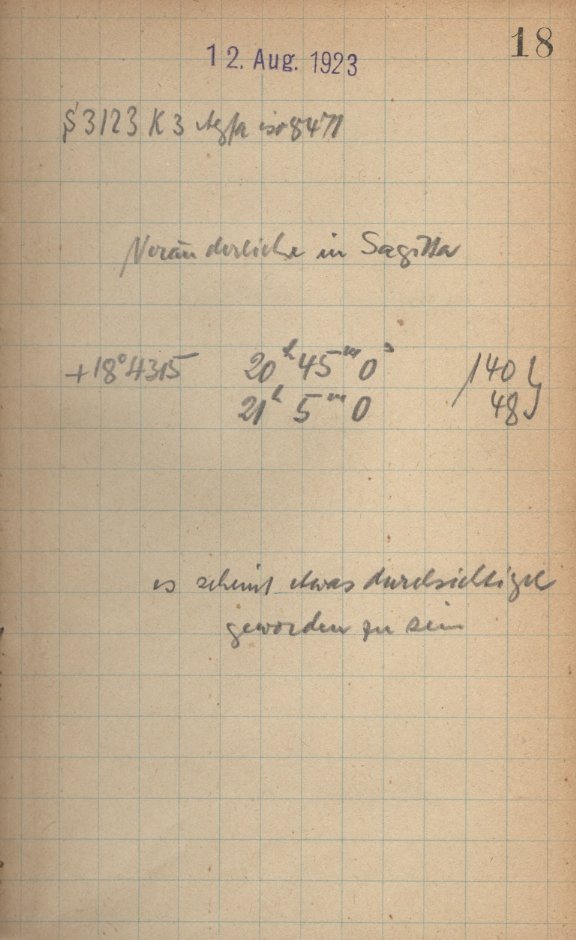 18
12. Aug. 1923
S 3123 K 3 Agfa iso 8471
Veränderliche in Sagitta
+18°4315 20ʰ45ᵐ0ˢ 140
21ʰ 5ᵐ 0 48
es scheint etwas durchsichtiger
geworden zu sein